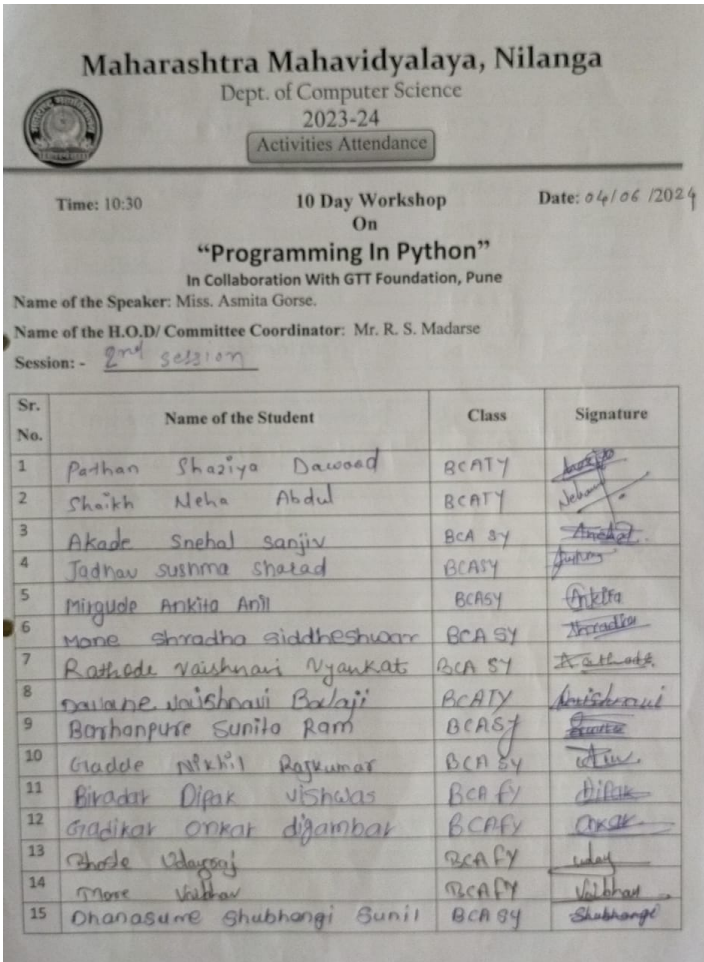 Maharashtra Mahavidyalaya, Nilanga
Dept. of Computer Science
2023-24
Activities Attendance
Time: 10:30 10 Day Workshop Date: 04/06/2024
On
“Programming In Python”
In Collaboration With GTT Foundation, Pune
Name of the Speaker: Miss. Asmita Gorse.
Name of the H.O.D/ Committee Coordinator: Mr. R. S. Madarse
Session: - 2nd session
Sr. No. Name of the Student Class Signature
1 Pathan Shaziya Dawood BCATY
2 Shaikh Neha Abdul BCATY Neha
3 Akade Snehal Sanjiv BCA SY
4 Jadhav sushma sharad BCASY
5 Mirgude Ankita Anil BCASY Ankita
6 Mane Shradha Siddheshwar BCA SY Shradha
7 Rathode Vaishnavi Vyankat BCA SY Rathode
8 Vaishnavi Balaji BCATY Vaishnavi
9 Borhanpure Sunita Ram BCASY
10 Gadde Nikhil Rajkumar BCA SY
11 Biradar Dipak vishwas BCA FY Dipak
12 Gadikar onkar digambar BCAFY onkar
13 Udayraj BCAFY uday
14 more Vaibhav BCAFY Vaibhav
15 Dhanasure Shubhangi Sunil BCA SY Shubhangi